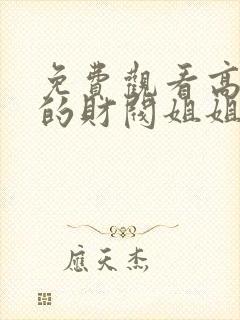 免費觀看高
的財閥姐姐
應天杰